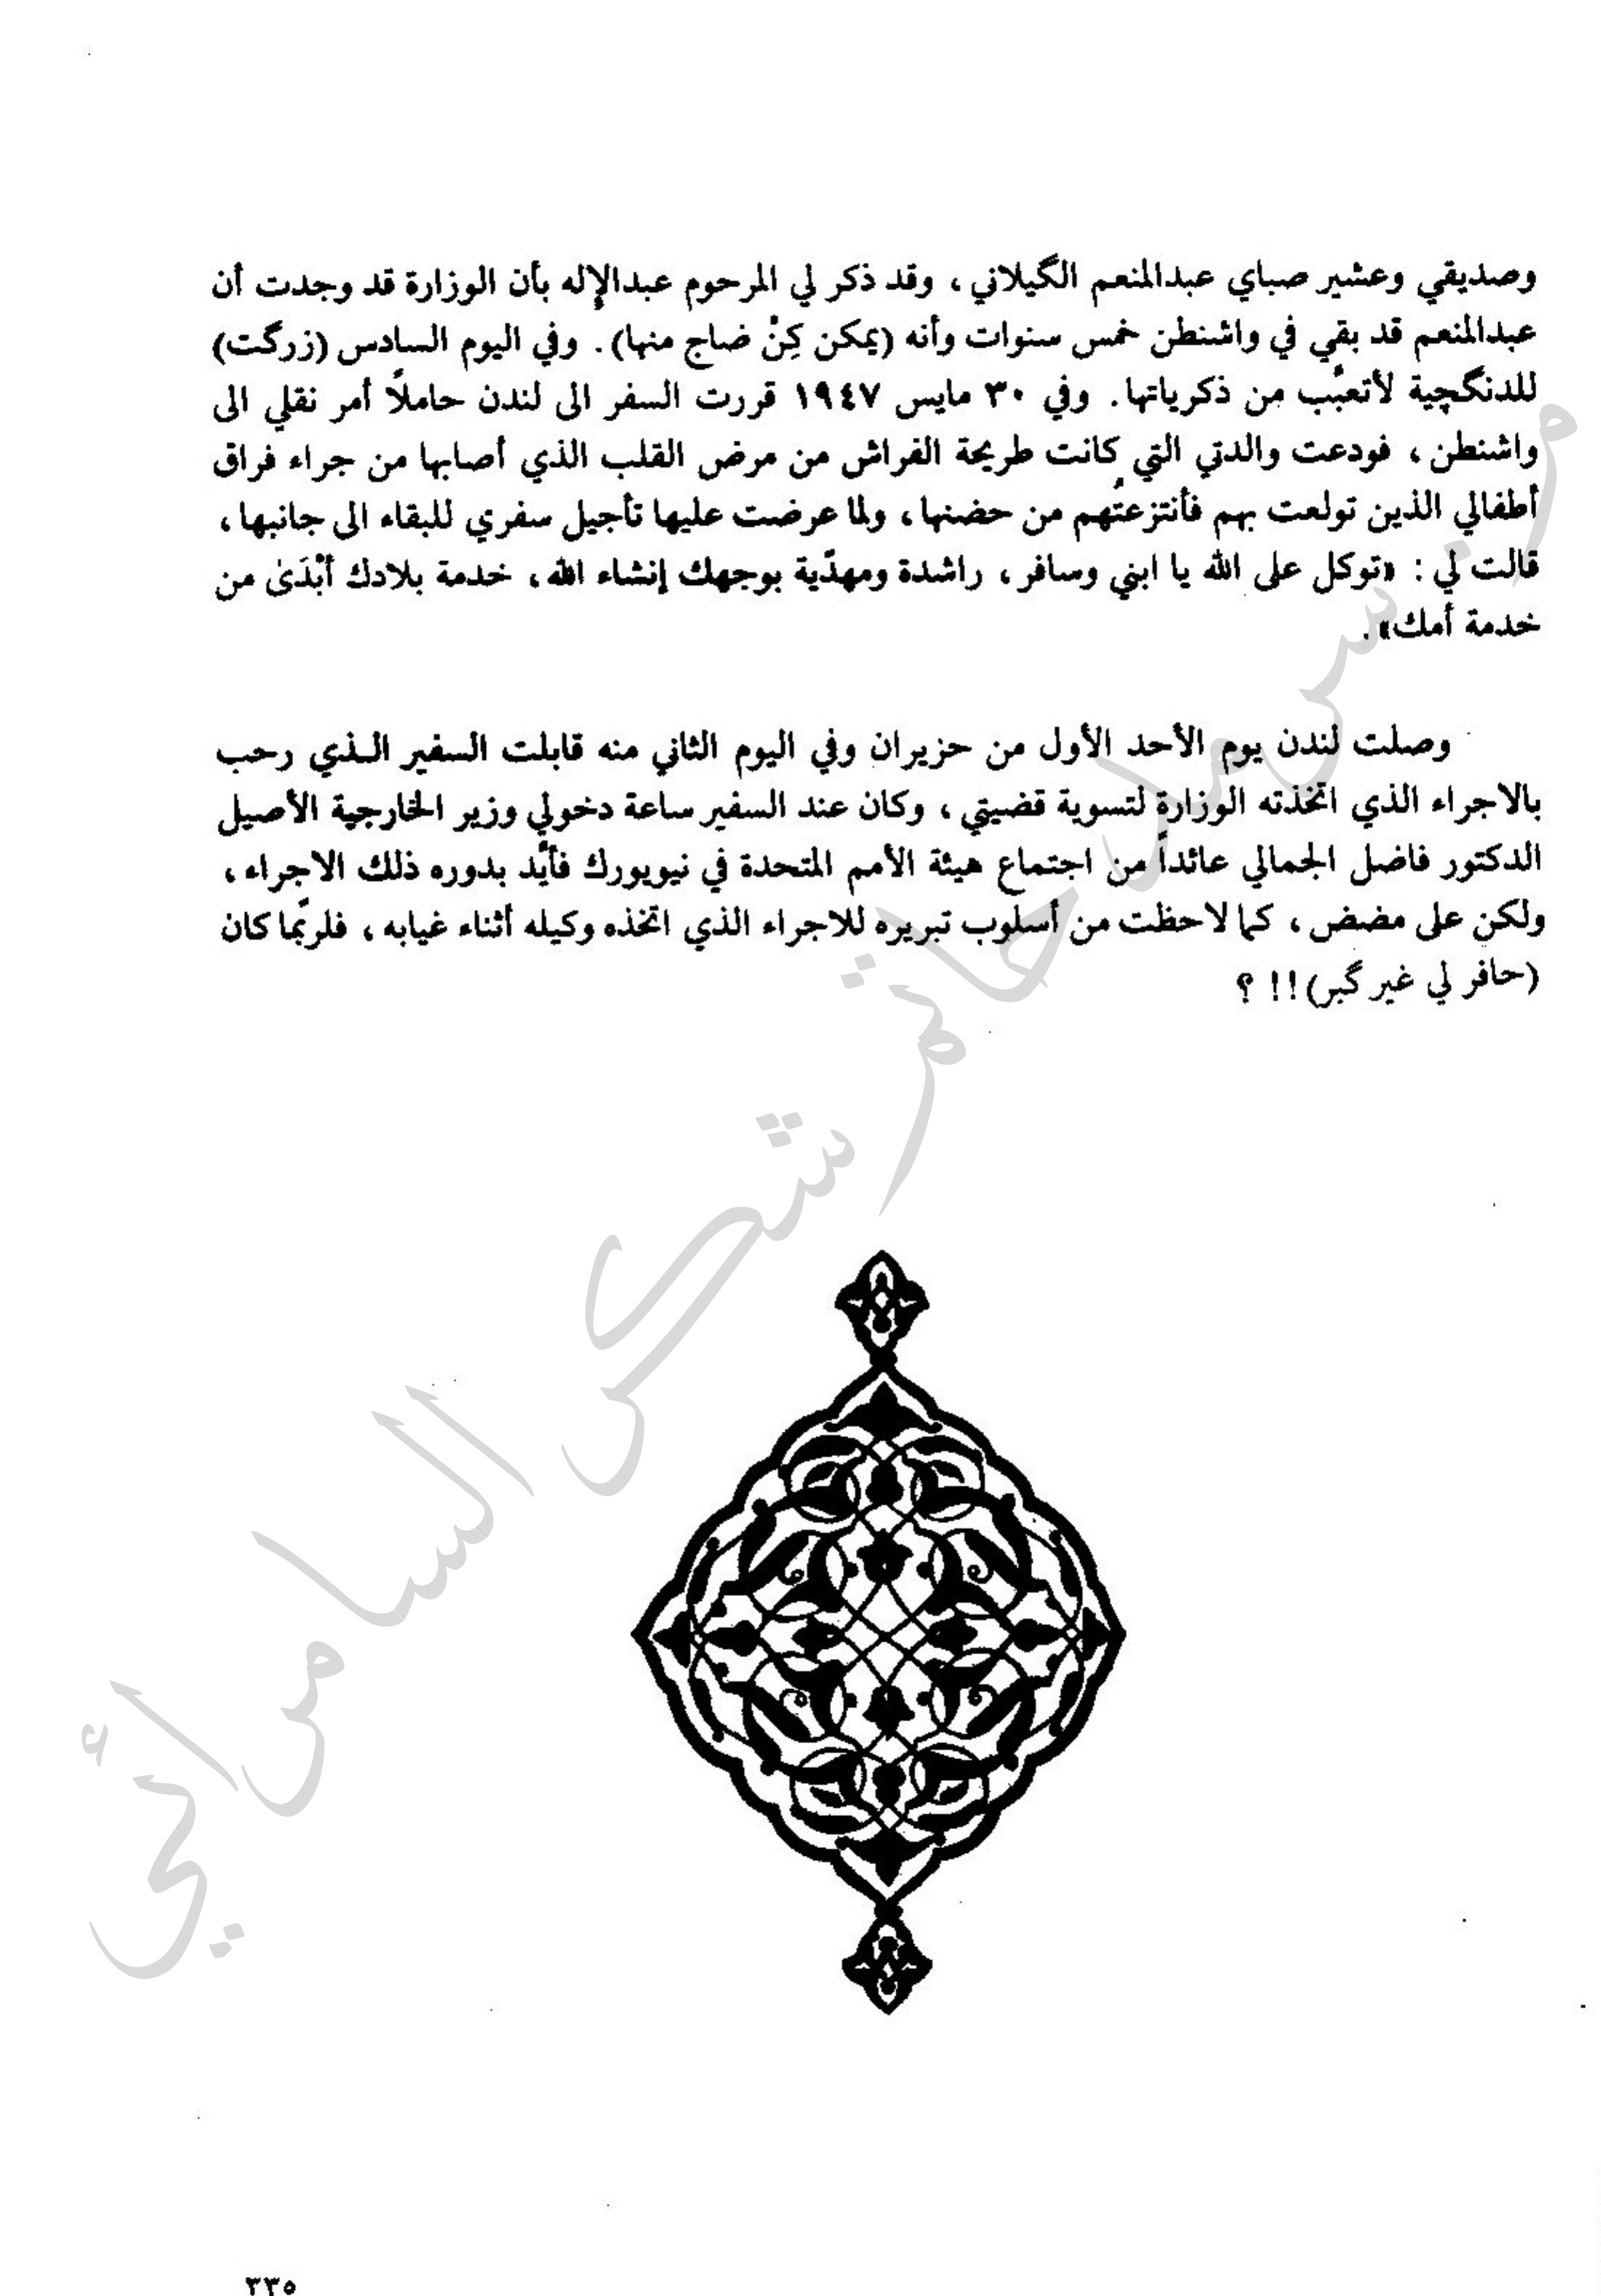 وصديقي وعشير صباي عبدالمنعم الگيلاني ، وقد ذكر لي المرحوم عبدالإله بأن الوزارة قد وجدت أن
عبدالمنعم قد بقي في واشنطن خمس سنوات وأنه (يمكن كِنْ ضاج منها). وفي اليوم السادس (زرگت)
للدنگچية لأتعبّب من ذكرياتها. وفي ٣٠ مايس ١٩٤٧ قررت السفر الى لندن حاملاً أمر نقلي الى
واشنطن ، فودعت والدتي التي كانت طريحة الفراش من مرض القلب الذي أصابها من جراء فراق
أطفالي الذين تولعت بهم فأنتزعتُهم من حضنها ، ولما عرضت عليها تأجيل سفري للبقاء الى جانبها ،
قالت لي : «توكل على الله يا ابني وسافر ، راشدة ومهدّية بوجهك إنشاء الله ، خدمة بلادك أَبْدَىٰ من
خدمة أمك» .
وصلت لندن يوم الأحد الأول من حزيران وفي اليوم الثاني منه قابلت السفير الـذي رحب
بالاجراء الذي اتخذته الوزارة لتسوية قضيتي ، وكان عند السفير ساعة دخولي وزير الخارجية الأصيل
الدكتور فاضل الجمالي عائداً من اجتماع هيئة الأمم المتحدة في نيويورك فأيّد بدوره ذلك الاجراء ،
ولكن على مضض ، كما لاحظت من أسلوب تبريره للاجراء الذي اتخذه وكيله أثناء غيابه ، فلربّما كان
(حافر لي غير گبر) !! ؟
سرمد حاتم شكر السامرائي
٣٣٥